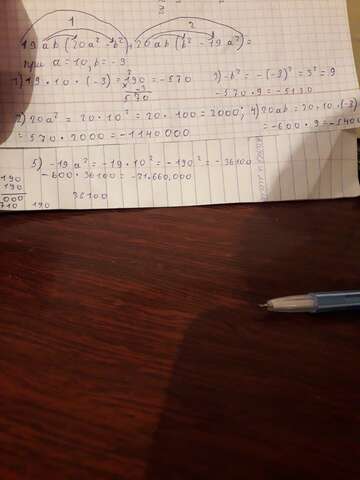 1 2
19ab(20a²-b²)+20ab(b²-19a²)=
при a=10, b=-3
1) 19·10·(-3)=190=-570
×-3
570
3) -b²=-(-3)²=3²=9
-570·9=-5130
2) 20a²=20·10²=20·100=2000;
=570·2000=-1140000
4) 20ab=20·10·(-3)
=-600·9=-5400
5) -19a²=-19·10²=-190²=-36100
-600·36100=-21.660.000
190
190
000
710 190 36100